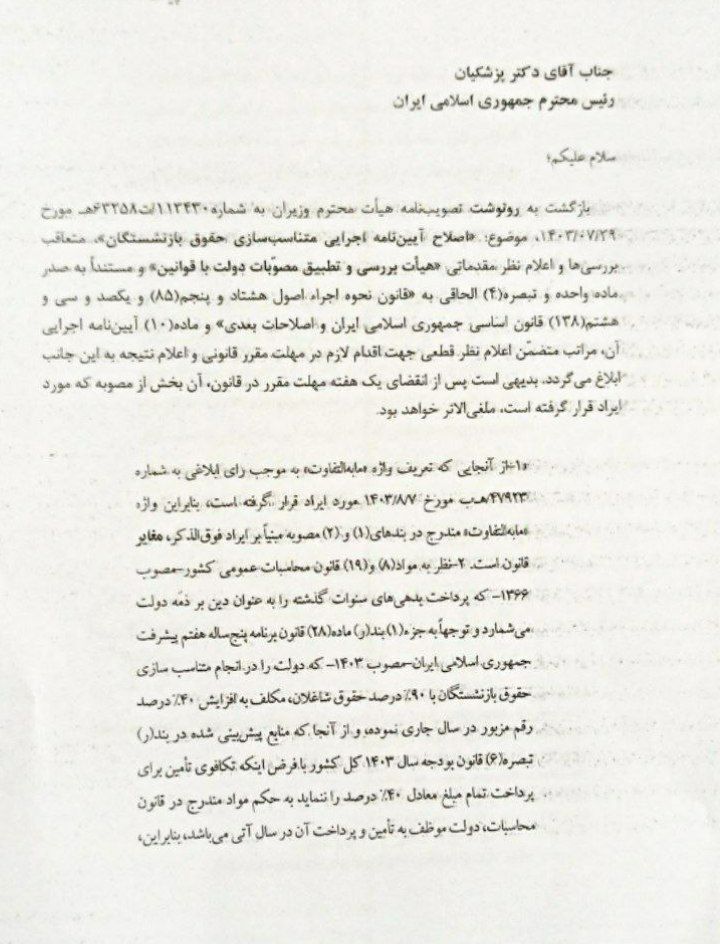 جناب آقای دکتر پزشکیان
رئیس محترم جمهوری اسلامی ایران
سلام علیکم؛
بازگشت به رونوشت تصویب‌نامه هیأت محترم وزیران به شماره ۱۱۳۴۳۰/ت۶۳۲۵۸هـ مورخ
۱۴۰۳/۰۷/۲۹، موضوع: «اصلاح آیین‌نامه اجرایی متناسب‌سازی حقوق بازنشستگان»، متعاقب
بررسی‌ها و اعلام نظر مقدماتی «هیأت بررسی و تطبیق مصوّبات دولت با قوانین» و مستنداً به صدر
ماده واحده و تبصره(۴) الحاقی به «قانون نحوه اجراء اصول هشتاد و پنجم(۸۵) و یکصد و سی و
هشتم(۱۳۸) قانون اساسی جمهوری اسلامی ایران و اصلاحات بعدی» و ماده(۱۰) آیین‌نامه اجرایی
آن، مراتب متضمّن اعلام نظر قطعی جهت اقدام لازم در مهلت مقرر قانونی و اعلام نتیجه به این جانب
ابلاغ می‌گردد. بدیهی است پس از انقضای یک هفته مهلت مقرر در قانون، آن بخش از مصوبه که مورد
ایراد قرار گرفته است، ملغی‌الاثر خواهد بود.
«۱-از آنجایی که تعریف واژه «مابه‌التفاوت» به موجب رای ابلاغی به شماره
۴۷۹۲۳/هـ‌ب مورخ ۱۴۰۳/۸/۷ مورد ایراد قرار گرفته است، بنابراین واژه
«مابه‌التفاوت» مندرج در بندهای(۱) و(۲) مصوبه مبنیاً بر ایراد فوق‌الذکر، مغایر
قانون است. ۲-نظر به مواد(۸) و(۱۹) قانون محاسبات عمومی کشور-مصوب
۱۳۶۶- که پرداخت بدهی‌های سنوات گذشته را به عنوان دین بر ذمّه دولت
می‌شمارد و توجهاً به جزء(۱) بند(و) ماده(۲۸) قانون برنامه پنج‌ساله هفتم پیشرفت
جمهوری اسلامی ایران-مصوب ۱۴۰۳- که دولت را در انجام متناسب سازی
حقوق بازنشستگان با ۹۰٪ درصد حقوق شاغلان، مکلف به افزایش ۴۰٪ درصد
رقم مزبور در سال جاری نموده، و از آنجا که منابع پیش‌بینی شده در بند(ر)
تبصره(۶) قانون بودجه سال ۱۴۰۳ کل کشور با فرض اینکه تکافوی تأمین برای
پرداخت تمام مبلغ معادل ۴۰٪ درصد را ننماید به حکم مواد مندرج در قانون
محاسبات، دولت موظف به تأمین و پرداخت آن در سال آتی می‌باشد، بنابراین،